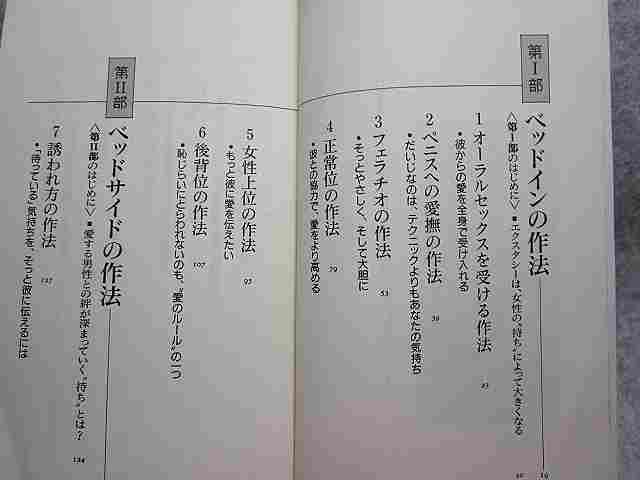 第Ⅰ部
ベッドインの作法 19
〈第Ⅰ部のはじめに〉●エクスタシーは、女性の“持ち”によって大きくなる 20
1 オーラルセックスを受ける作法 27
●彼からの愛を全身で受け入れる
2 ペニスへの愛撫の作法 39
●だいじなのは、テクニックよりもあなたの気持ち
3 フェラチオの作法 53
●そっとやさしく、そして大胆に
4 正常位の作法 79
●彼との協力で、愛をより高める
5 女性上位の作法 95
●もっと彼に愛を伝えたい
6 後背位の作法 107
●恥じらいにとらわれないのも、“愛のルール”の一つ
第Ⅱ部
ベッドサイドの作法
〈第Ⅱ部のはじめに〉●愛する男性との絆が深まっていく“持ち”とは? 124
7 誘われ方の作法 127
●「待っている」気持ちを、そっと彼に伝えるには